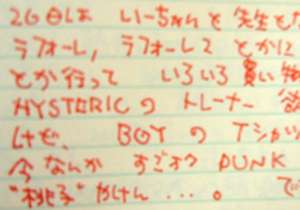 26日は いーちゃんと 先生と
ラフォーレ, ラフォーレ2 とかに
とか行って いろいろ 買い物
HYSTERICの トレーナー 欲
けど、 BOYの Tシャツ
今なんか すごすぎ PUNK
"桃子" やけん ...。 で